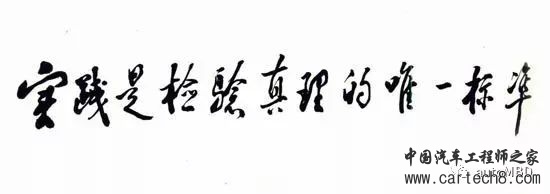 实践是检验真理的唯一标准
中国汽车工程师之家
autoMBD
www.cartech8.com